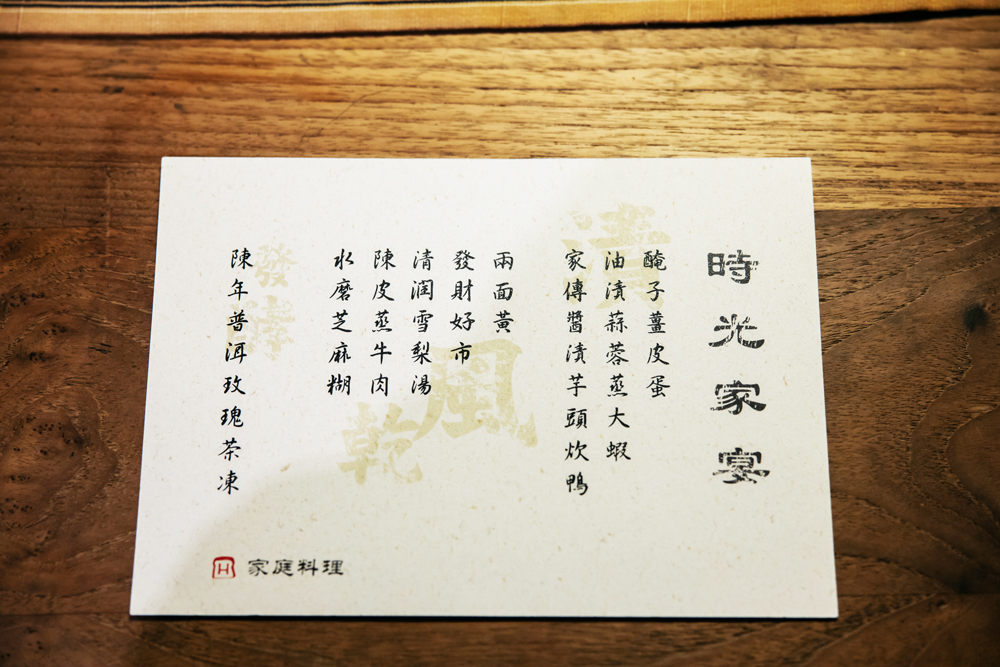 時光家宴
醃子薑皮蛋
油漬蒜蓉蒸大蝦
家傳醬漬芋頭炊鴨
兩面黃
發財好市
清潤雪梨湯
陳皮蒸牛肉
水磨芝麻糊
陳年普洱玫瑰茶凍
漬
風乾
發酵
H 家庭料理